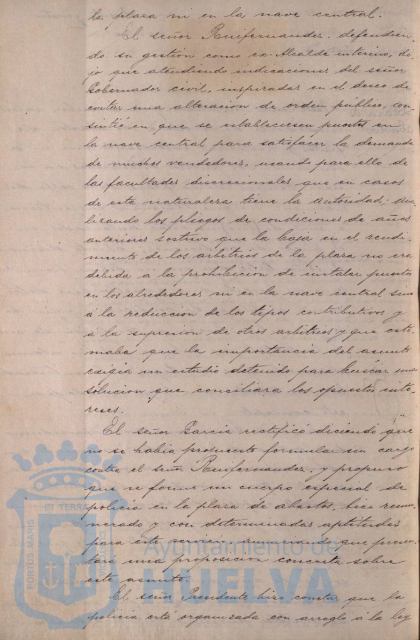 la plaza ni en la nave central.
El señor Ramifernandez, defendien-
do su gestión como ex-Alcalde interino, di-
jo que atendiendo indicaciones del señor
Gobernador civil, inspiradas en el deseo de
evitar una alteración de orden público, con
sintió en que se estableciesen puestos en
la nave central para satisfacer la demanda
de muchos vendedores, usando para ello de
las facultades discrecionales que en casos
de esta naturaleza tiene la autoridad;
los pliegos de condiciones de años
anteriores sostuvo que la baja en el rendi-
miento de los arbitrios de la plaza no era
debida a la prohibición de instalar puestos
en los alrededores ni en la nave central sino
a la reducción de los tipos contributivos y
a la supresión de otros arbitrios y que esti-
maba que la importancia del asunto
exigía un estudio detenido para buscar una
solución que conciliara los opuestos inte-
reses.
El señor García rectificó diciendo que
no se había propuesto formular un cargo
contra el señor Ramifernandez, y propuso
que se forme un cuerpo especial de
policía en la plaza de abastos, bien remu-
nerado y con determinadas aptitudes
para este servicio, anunciando que presen-
tara una proposición concreta sobre
este asunto.
El señor Presidente hizo constar que la
policía está organizada con arreglo a la ley
Ayuntamiento de
HUELVA